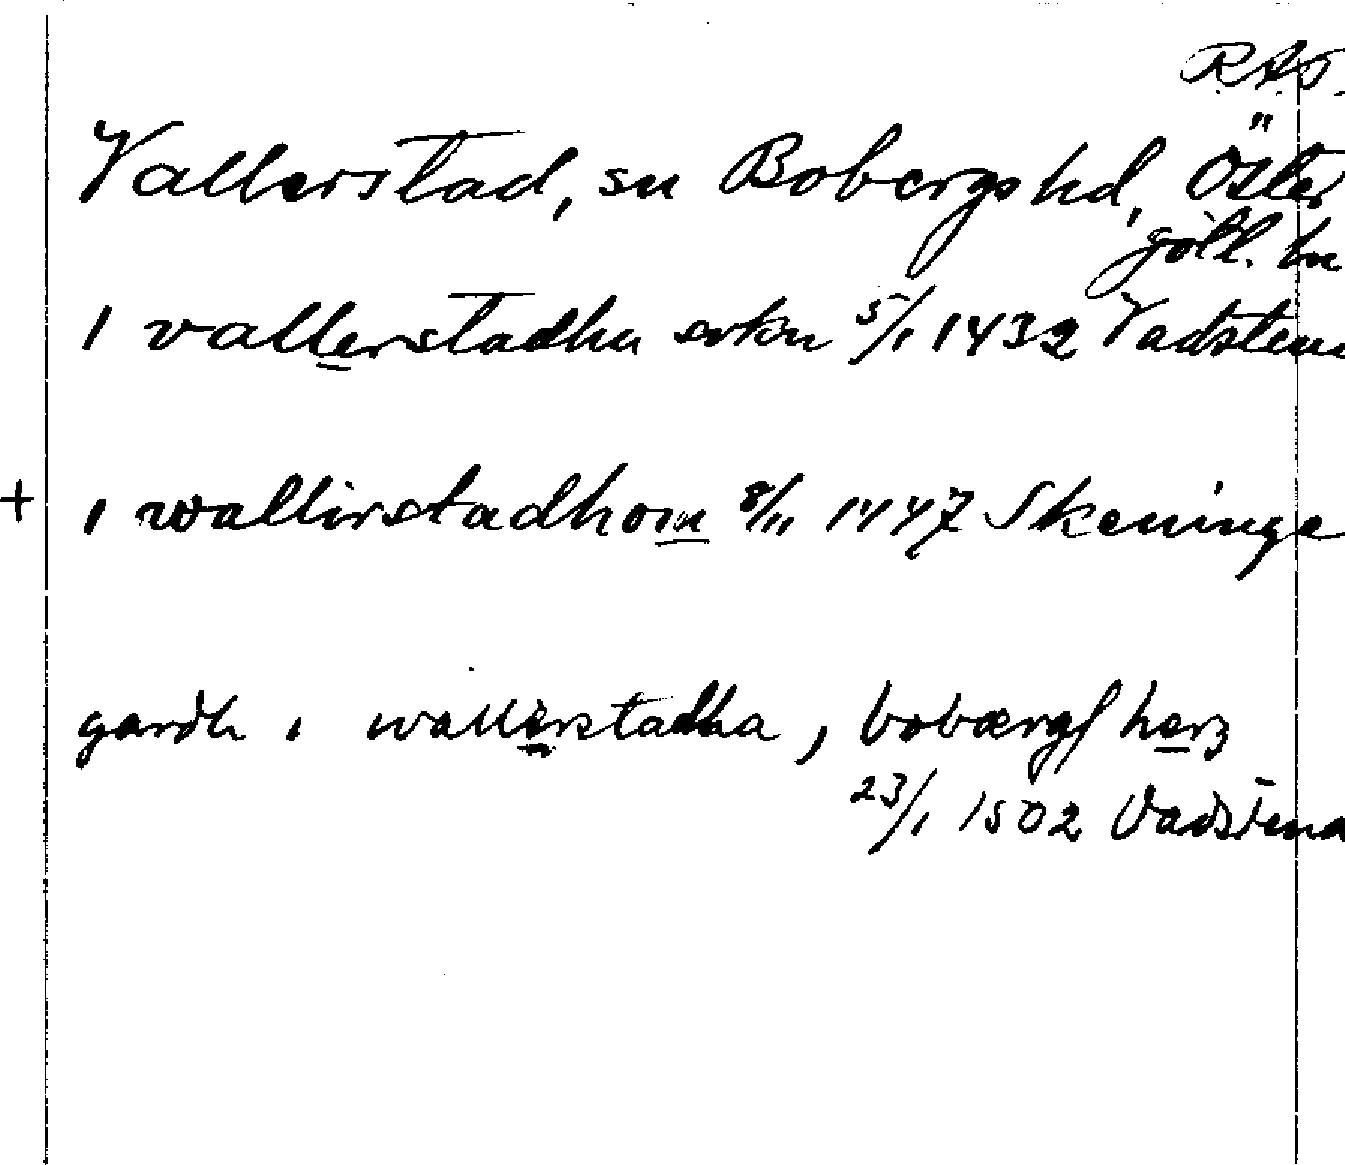 RAP.
Vallerstad, sn Bobergs hd, Öster
götl. ln
I vallerstadha sokn 5/1 1432 Vadstena
+ i wallirstadhom 8/11 1447 Skeninge
gardh i wallerstadha, bobærgs herz
23/1 1502 Vadstena